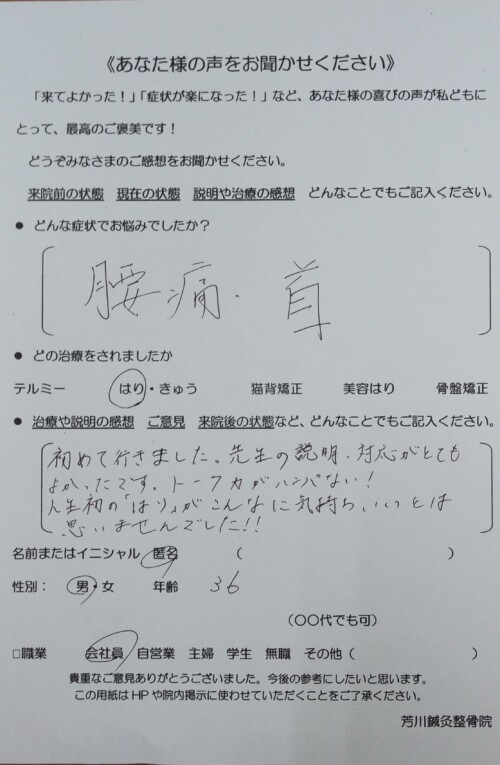 《あなた様の声をお聞かせください》
「来てよかった！」「症状が楽になった！」など、あなた様の喜びの声が私どもに
とって、最高のご褒美です！
どうぞみなさまのご感想をお聞かせください。
来院前の状態 現在の状態 説明や治療の感想 どんなことでもご記入ください。
● どんな症状でお悩みでしたか？
腰痛・首
● どの治療をされましたか
テルミー はり・きゅう 猫背矯正 美容はり 骨盤矯正
● 治療や説明の感想 ご意見 来院後の状態など、どんなことでもご記入ください。
初めて行きました。先生の説明、対応がとても
よかったです。トーク力がハンパない！
人生初の「はり」がこんなに気持ちいいとは
思いませんでした！！
名前またはイニシャル 匿名 （ ）
性別： 男・女 年齢 36
（〇〇代でも可）
□職業 会社員 自営業 主婦 学生 無職 その他（ ）
貴重なご意見ありがとうございました。今後の参考にしたいと思います。
この用紙はHPや院内掲示に使わせていただくことをご了承ください。
芳川鍼灸整骨院